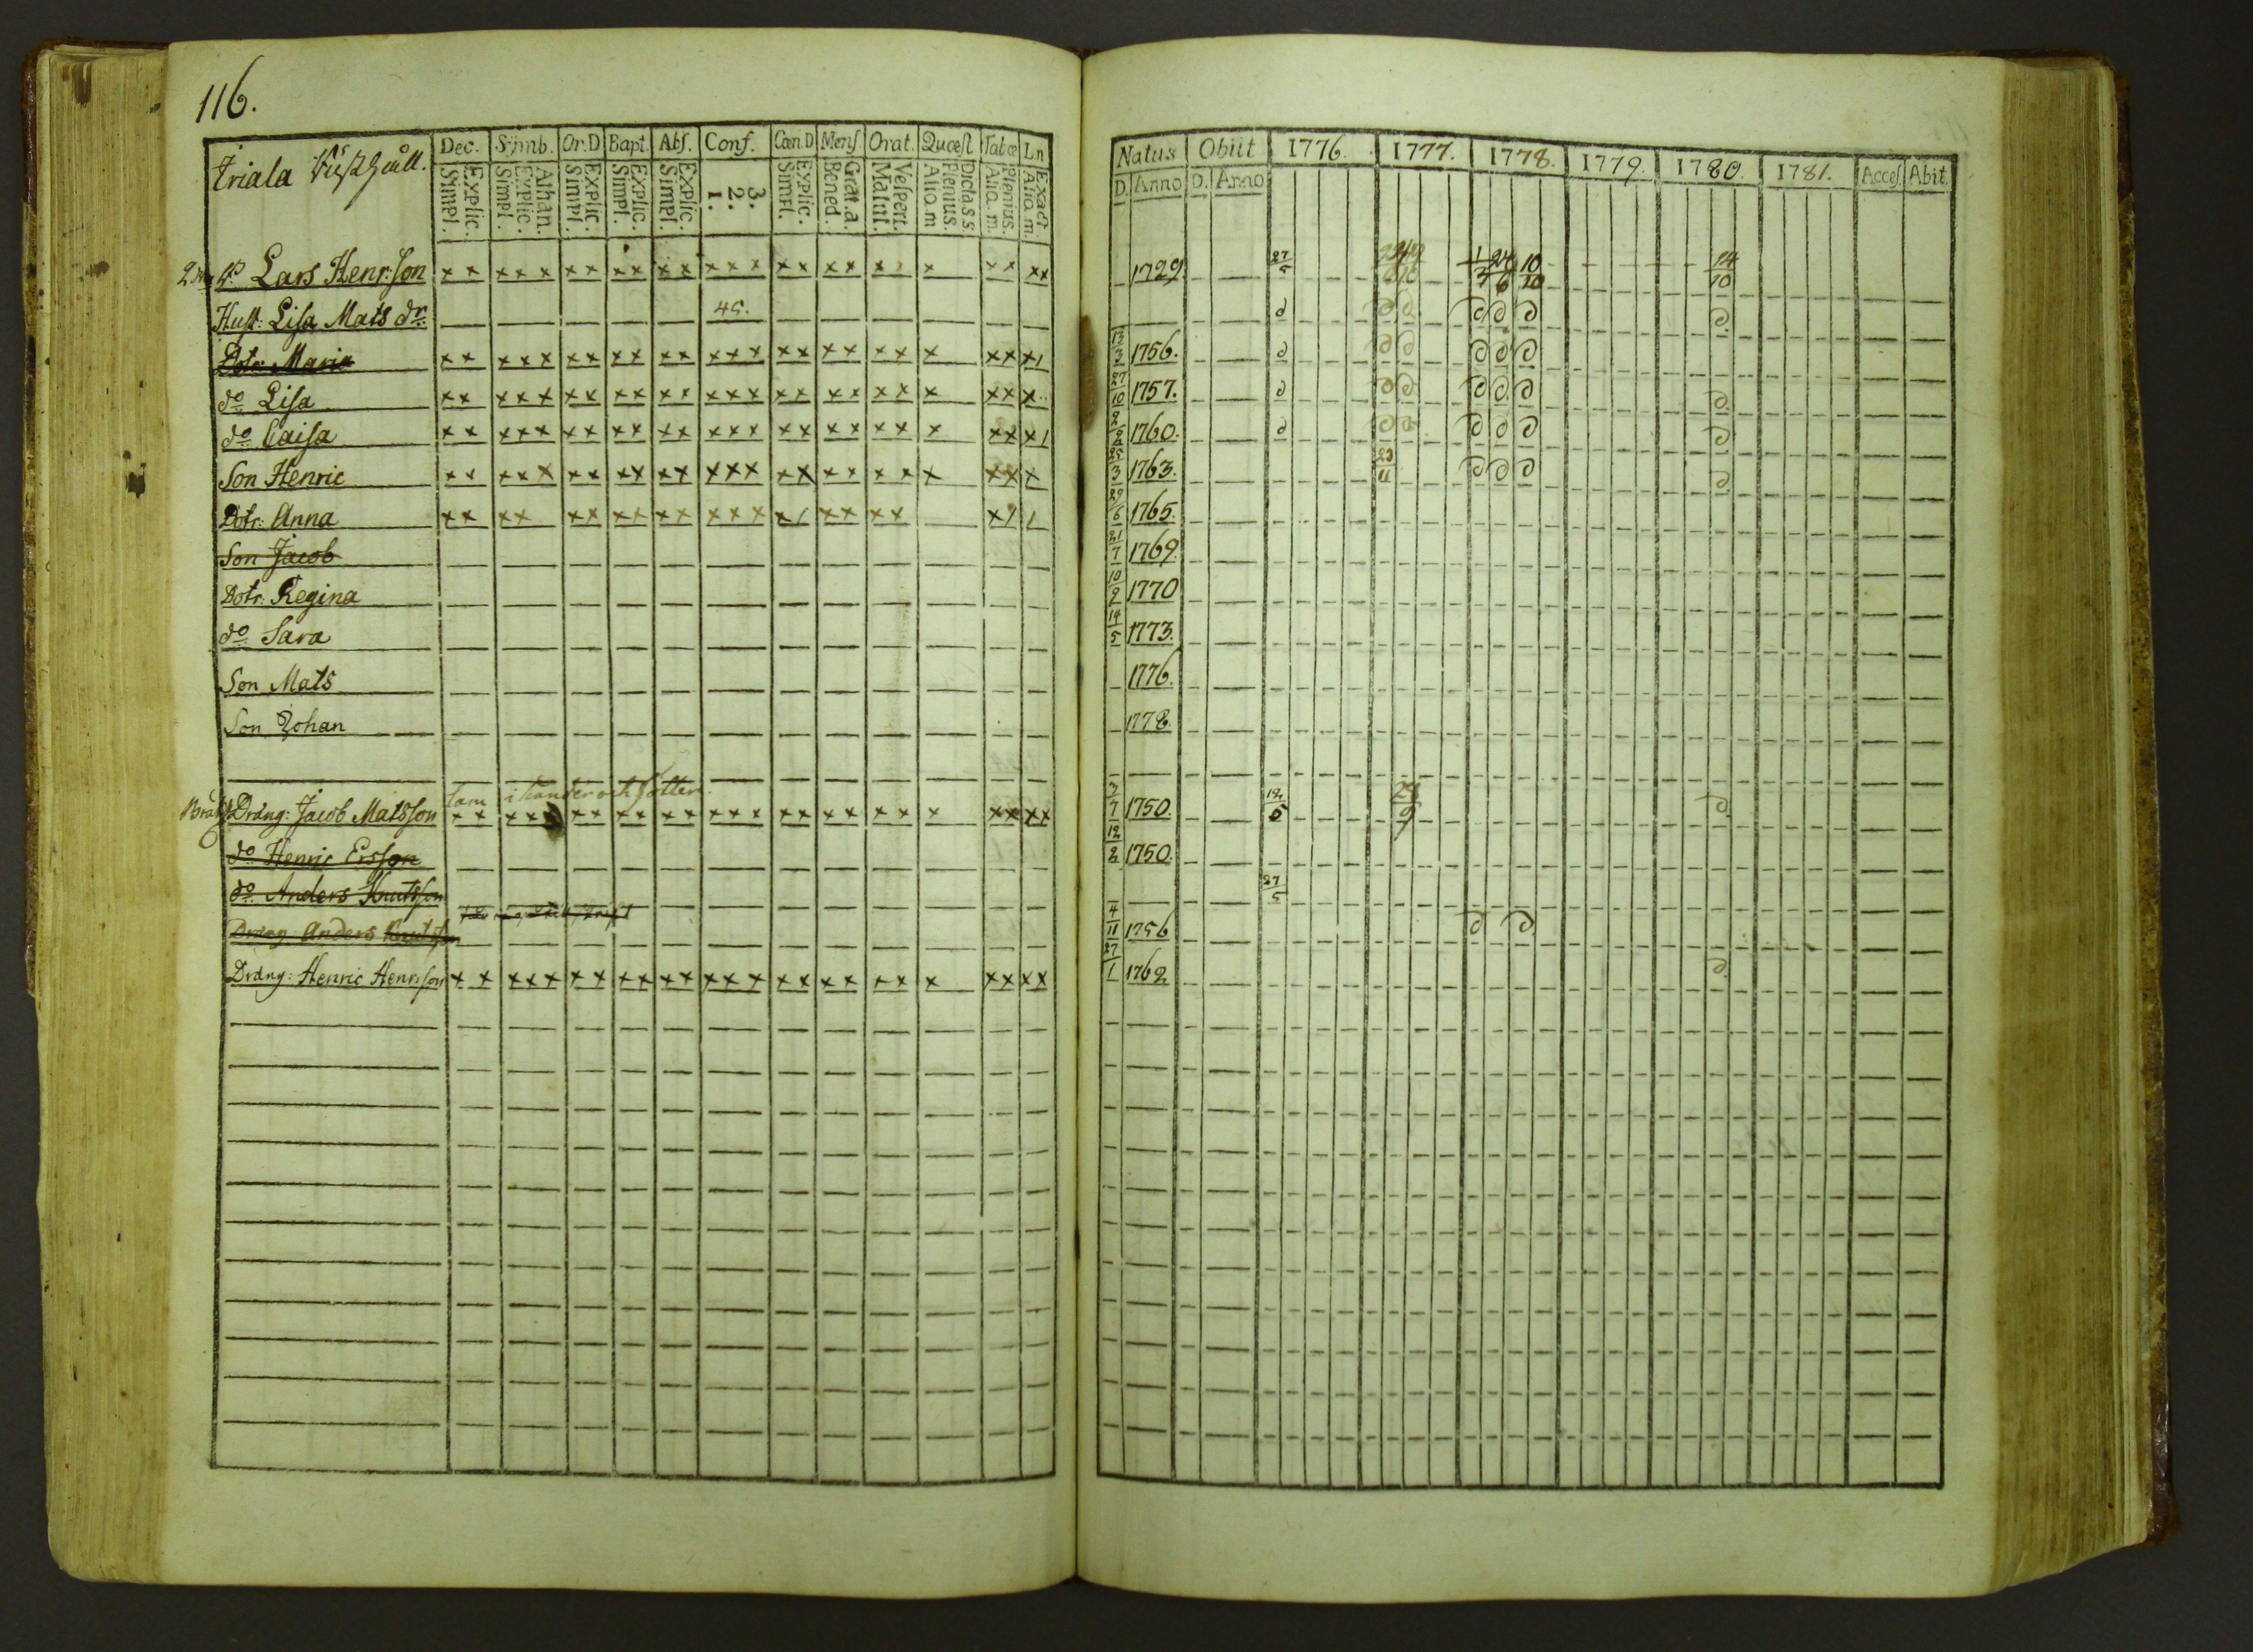 116.
Triala
Dec. Symb. Or.D Bapt. Abs. Conf. Cœn D Mens. Orat. Quæst Tabœ Ln
Explic. Simpl. Athan. Explic. Simpl. Explic. Simpl. Explic. Simpl. Explic. Simpl. 3. 2. 1. Explic. Simpl. Grat.a. Bened. Vespert. Matut. Dictass. Plenius. Aliq.m Plenius. Aliq.m. Exact Aliq.m.
Lars Henr:son x x x x x x x x x x x x x x x x x x x x x x x x x x
Hust: Lisa Mats dr. 45.
Dotr Maria x x x x x x x x x x x x x x x x x x x x x x x x 1
do Lisa x x x x x x x x x x x x x x x x x x x x x x x x
do Caisa x x x x x x x x x x x x x x x x x x x x x x x x 1
Son Henric x x x x x x x x x x x x x x x x x x x x x x x x
Dotr: Anna x x x x x x x x x x x x x x 1 x x x x x 1 1
Son Jacob
Dotr: Regina
do Sara
Son Mats
Son Johan
lam i händer och fötter.
Dräng: Jacob Matsson x x x x x x x x x x x x x x x x x x x x x x x x x
do Henric Ersson
do Anders Knutsson
Dräng Anders Knutsson
Dräng: Henric Henr:son x x x x x x x x x x x x x x x x x x x x x x x x x
Natus Obiit 1776. 1777. 1778. 1779. 1780. 1781. Acces. Abit.
D. Anno D. Anno
1729 27/5 1/3 24/6 10/10 14/10
13/3 1756.
27/10 1757.
2/2 1760.
25/3 1763. 23/11
29/6 1765.
21/7 1769.
10/2 1770
14/5 1773.
1776.
1778.
3/7 1750. 12/5
12/2 1750.
27/5
4/11 1756
27/1 1762